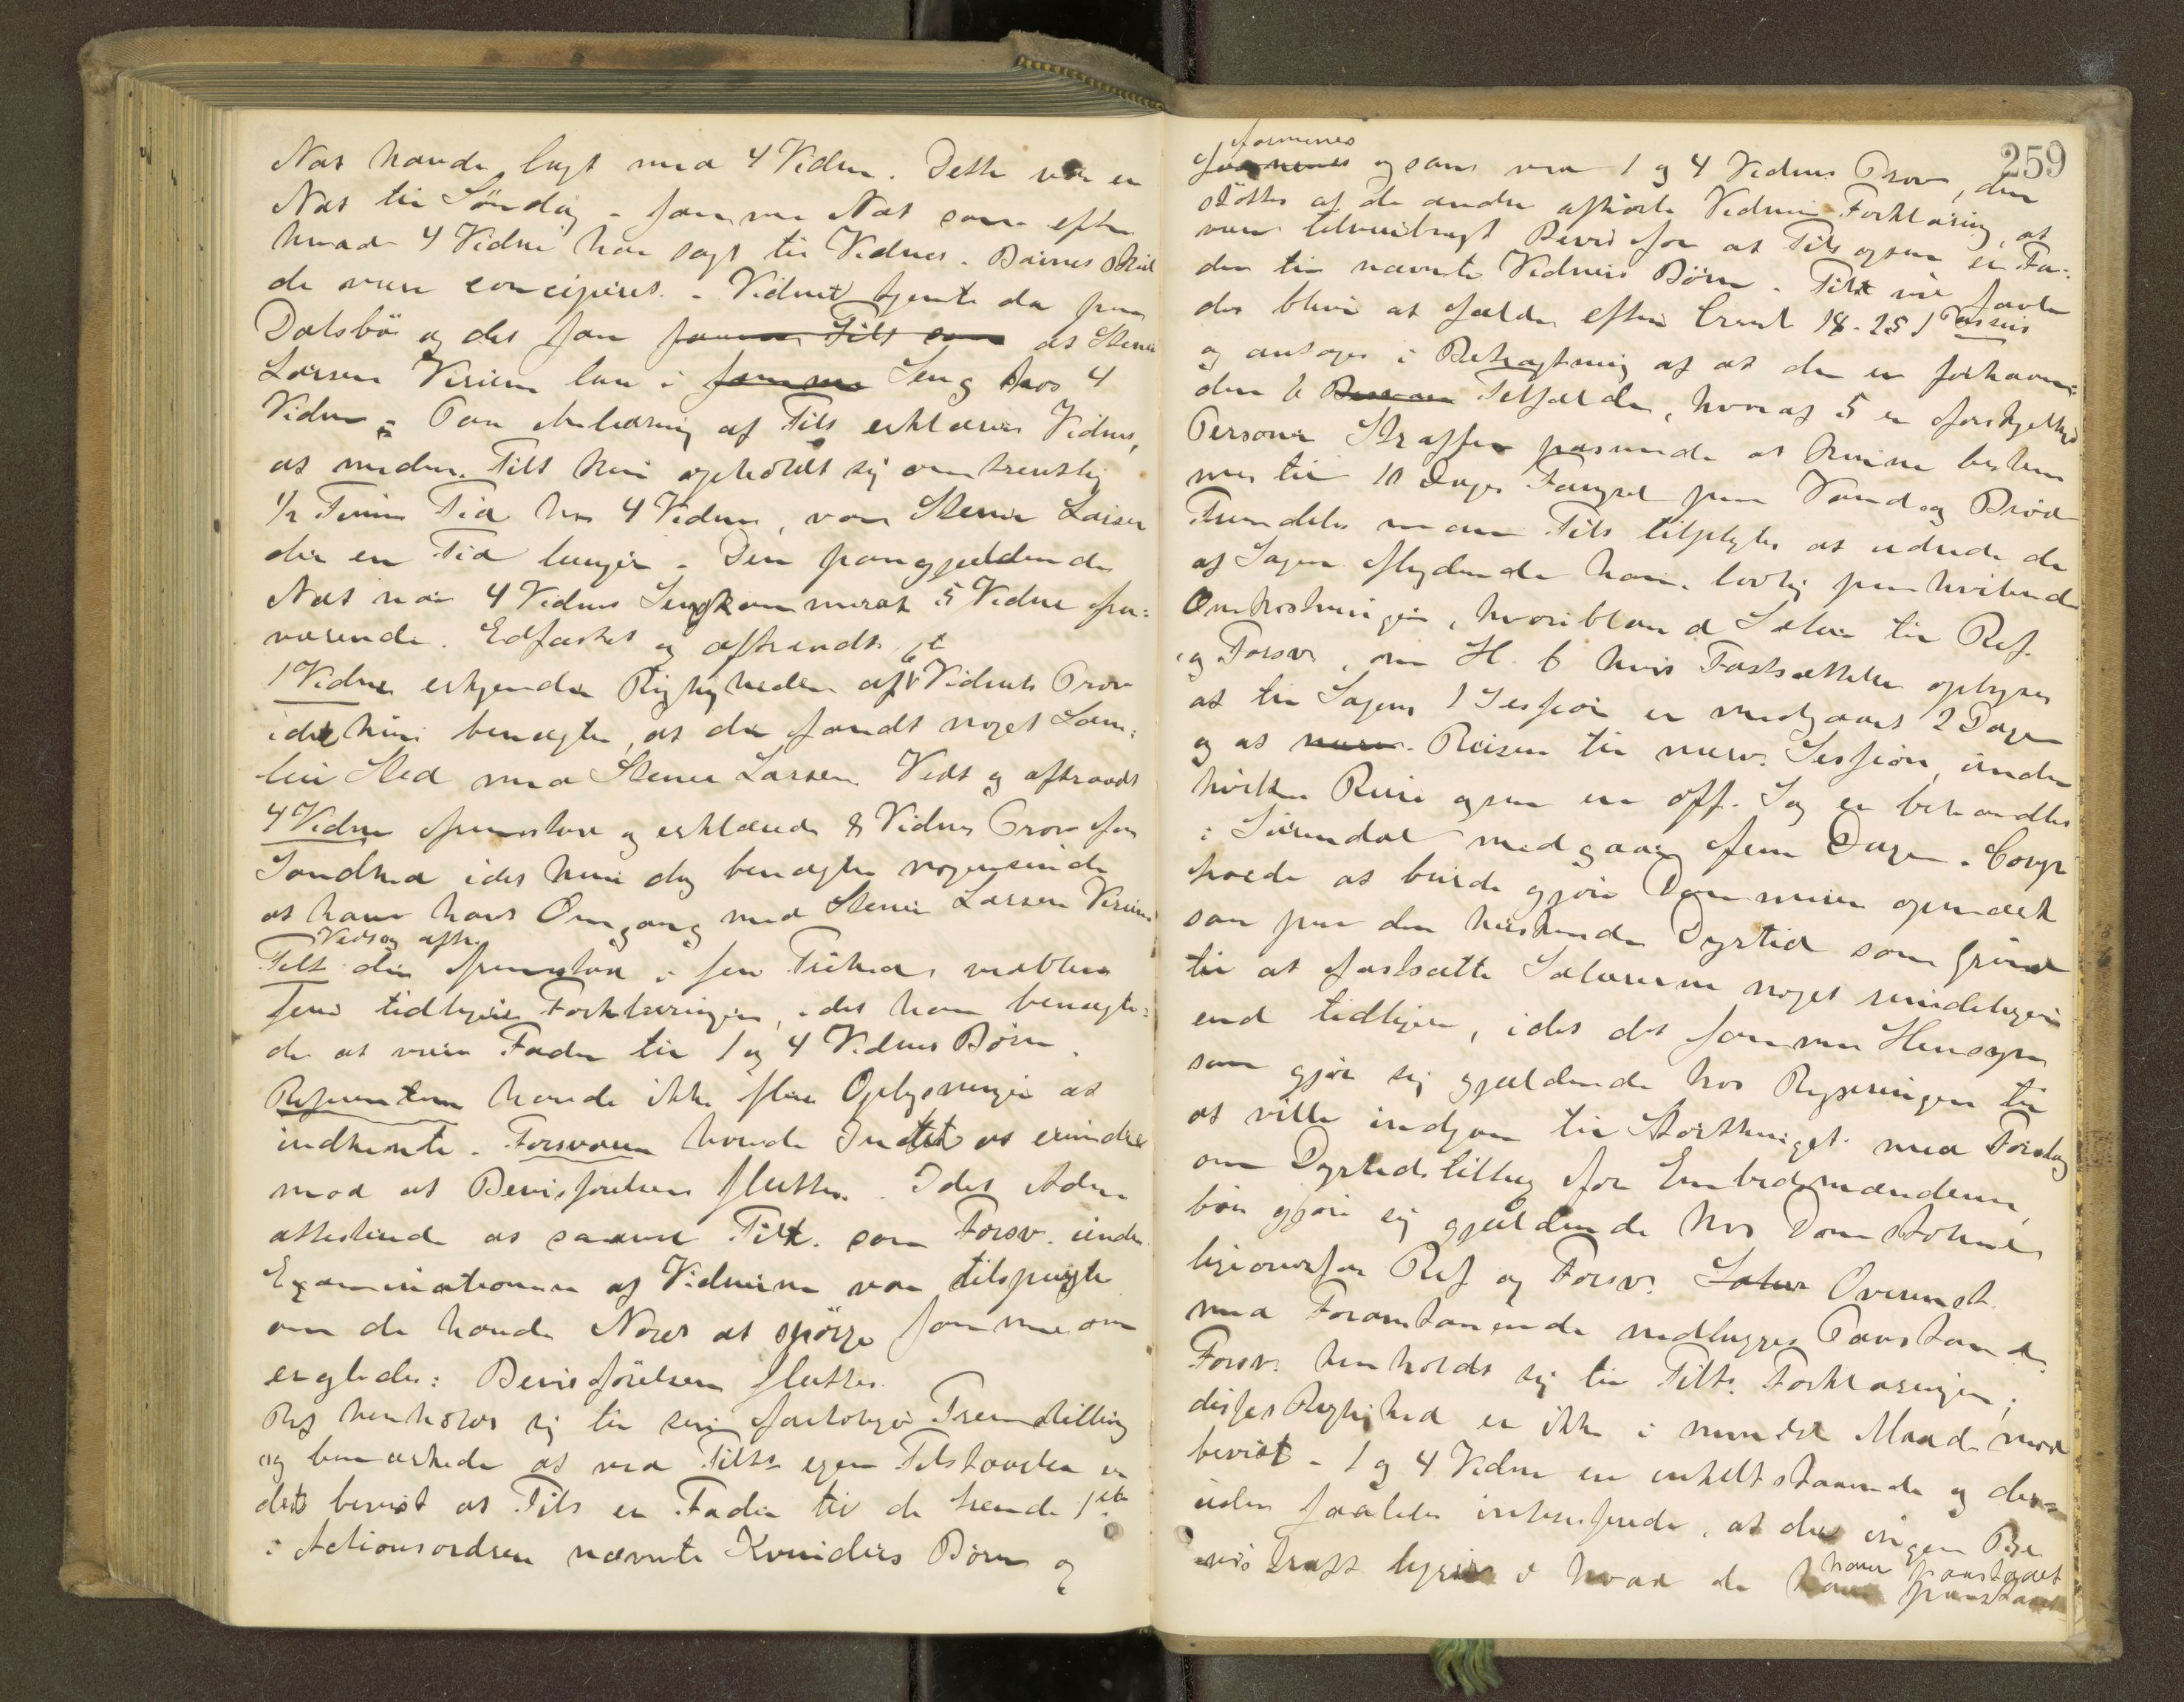 Nat havde ligt med 4 Vidne. Dette var en
Nat til Søndag - samme Nat som efter
hvad 4 Vidne har sagt til Vidnet. Barnet skul
de være conciperet. - Vidnet tjente da paa
Dalsbö og det saa at Stener
Larsen Virium laa i Seng hos 4
Vidne - Paa Anledning af Tilt erklærer Vidnet,
at medens Tilt kun opholdt sig omtrentlig
1/2 Times Tid hos 4 Vidne, var Stener Larsen
der en Tid længer - Den paagjældende
Nat var 4 Vidnes Sengkammerat 5 Vidne fra-
værende. Edfæstet og aftraadt.
1 Vidne erkjender Rigtigheden af 6te Vidnets Prov
idet hun benægter, at der fandt noget Sam-
leie Sted med Stener Larsen. Vedt og aftraadt
4 Vidne fremstod og erklærede 8 Vidnes Prov for
Sandhed idet hun dog benægter nogensinde
at have havt Omgang med Stener Larsen Virium
Vedt og aftr.
Tilt der fremstod i sin Frihed, vedblev
sine tidligere Forklaringer, idet han benægte-
de at være Fader til 1 og 4 Vidnes Børn.
Referenten havde ikke flere Oplysninger at
indhente. Forsvaren havde Intet at erindre
mod at Bevisførelsen sluttes. Idet Adm
attesterede at saavel Tilt. som Forsv. under
Examinationen af Vidnerne var tilspurgte
om de havde Noget at spørge samme om
erglædes: Bevisførelsen sluttes.
Ref henholdt sig til sin forelagte Fremstilling
og bemærkede at ved Tilts egen Tilstaaelse er
det bevist at Tilt er Fader til de trende first
i Actionsordren nævnte Kvinders Børn og
259
formenes
formenes ogsaa ved 1 og 4 Vidnes Prov, der
støttes af de andre afhørte Vidners Forklaring, at
være tilveiebragt Bevis for at Tilt ogsaa er Fa-
der til nævnte Vidners Børn. Tilt vil saale
des blive at fælde efter Crml 18-25 1 Passus
og antages i Betragtning af at der er forhaanden
den 6 Tilfælde, hvoraf 5 er forskjellige
Personer Straffen passende at kunne bestem
mes til 10 Dages Fængsel paa Vand og Brød
Fremdeles maa Tilt tilpligtes at udrede de
af Sagen flydende hans lovlig paahvilende
Omkostninger, hvoriblandt Salær til Ref.
og Forsv, om H. t hvis Fastsættelse oplyses
at til Sagens 1 Session er medgaaet 2 Dage
og at Reisen til nærv. Session, under
hvilken Reise ogsaa en off. Sag er behandlet
i Surendal medgaar fem Dage. Comp
troede at burde gjøre Dommeren opmærk
som paa den herskende Dyrtid som Grund
til at fastsætte Salærerne noget rundeligere
end tidligere, idet det samme Hensyn
som gjør sig gjældende hos Regjeringen til
at ville indgaa til Storthinget med Forslag
om Dyrtidstillæg for Embedsmændene,
bør gjøre sig gjældende hos Domstolene
ligeoverfor Ref og Forsv. Overenst.
med Foranstaaende nedlægges Paastand.
Forsv. henholdt sig til Tilts Forklaringer;
disses Rigtighed er ikke i mindste Maade mod
bevist - 1 og 4 Vidne er enkeltstaaende og des-
uden saaledes interesserede, at der ingen Be
vis kraft ligger i hvad de have paastaaet